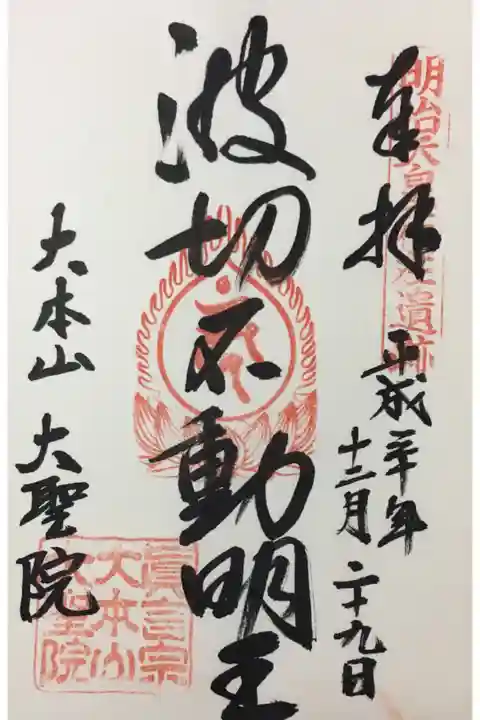 明治天皇
遺跡
奉拝
平成二十年
十二月二十九日
波切不動明王
大本山 大聖院
眞言宗
大本山
大聖院